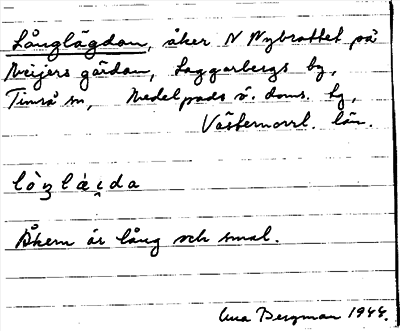 Långlägdan, åker N Nybrottet på
Meijers gården, Laggarbergs by,
Timrå sn, Medelpads ö. doms. tg,
Västernorrl. län.
Åkern är lång och smal.
Bergman 1944.